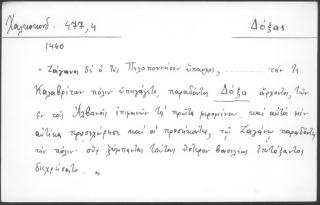 Χαλκοκονδ. 477,4
Δόξας
1460
" Ζάγανος δὲ ὁ τῆς Πελοποννήσου ὕπαρχος, ......... τήν τε
Καλαβρύτων πόλιν ὑπηγάγετο, παραδόντος Δόξα ἄρχοντος, τῶν
ἐν τοῖς Ἀλβανοῖς ἐπιμανῶν τὰ πρῶτα φερομένου. καὶ αὐτῷ μὲν
αὐτίκα προσεχώρησε καὶ οἱ προσήκοντες, τῷ Ζαγάνῳ παραδόντι
τὴν πόλιν. οὓς ξύμπαντας τούτους ὕστερον βασιλέως ἐπιτάξαντος
διεχρήσατο. "